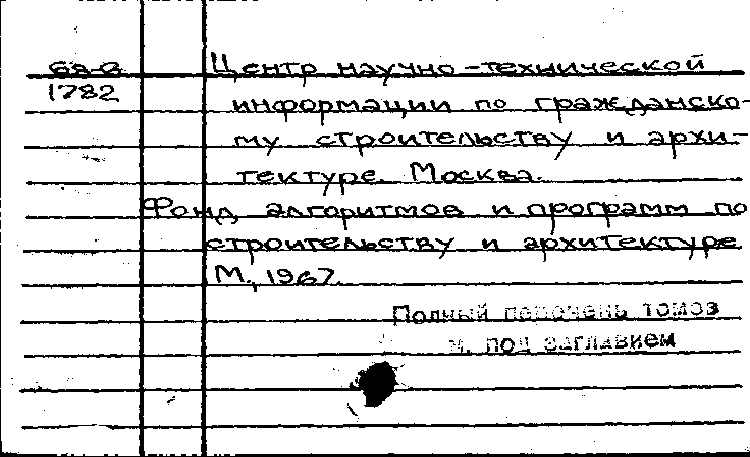 68-8 Центр научно-технической
1782 информации по гражданско-
му строительству и архи-
тектуре. Москва.
Фонд алгоритмов и программ по
строительству и архитектуре
М., 1967.
Полный перечень томов
под заглавием